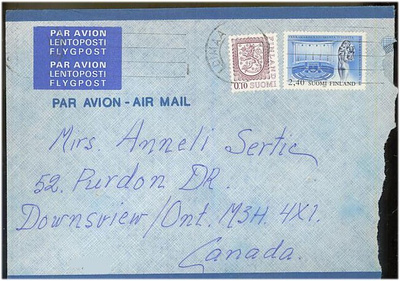 PAR AVION
LENTOPOSTI
FLYGPOST
PAR AVION
LENTOPOSTI
FLYGPOST
0.10 SUOMI
FINLAND
2,40 SUOMI FINLAND
PAR AVION - AIR MAIL
Mrs. Anneli Sertic
52. Purdon DR.
Downsview/Ont. M3H. 4X1.
Canada.